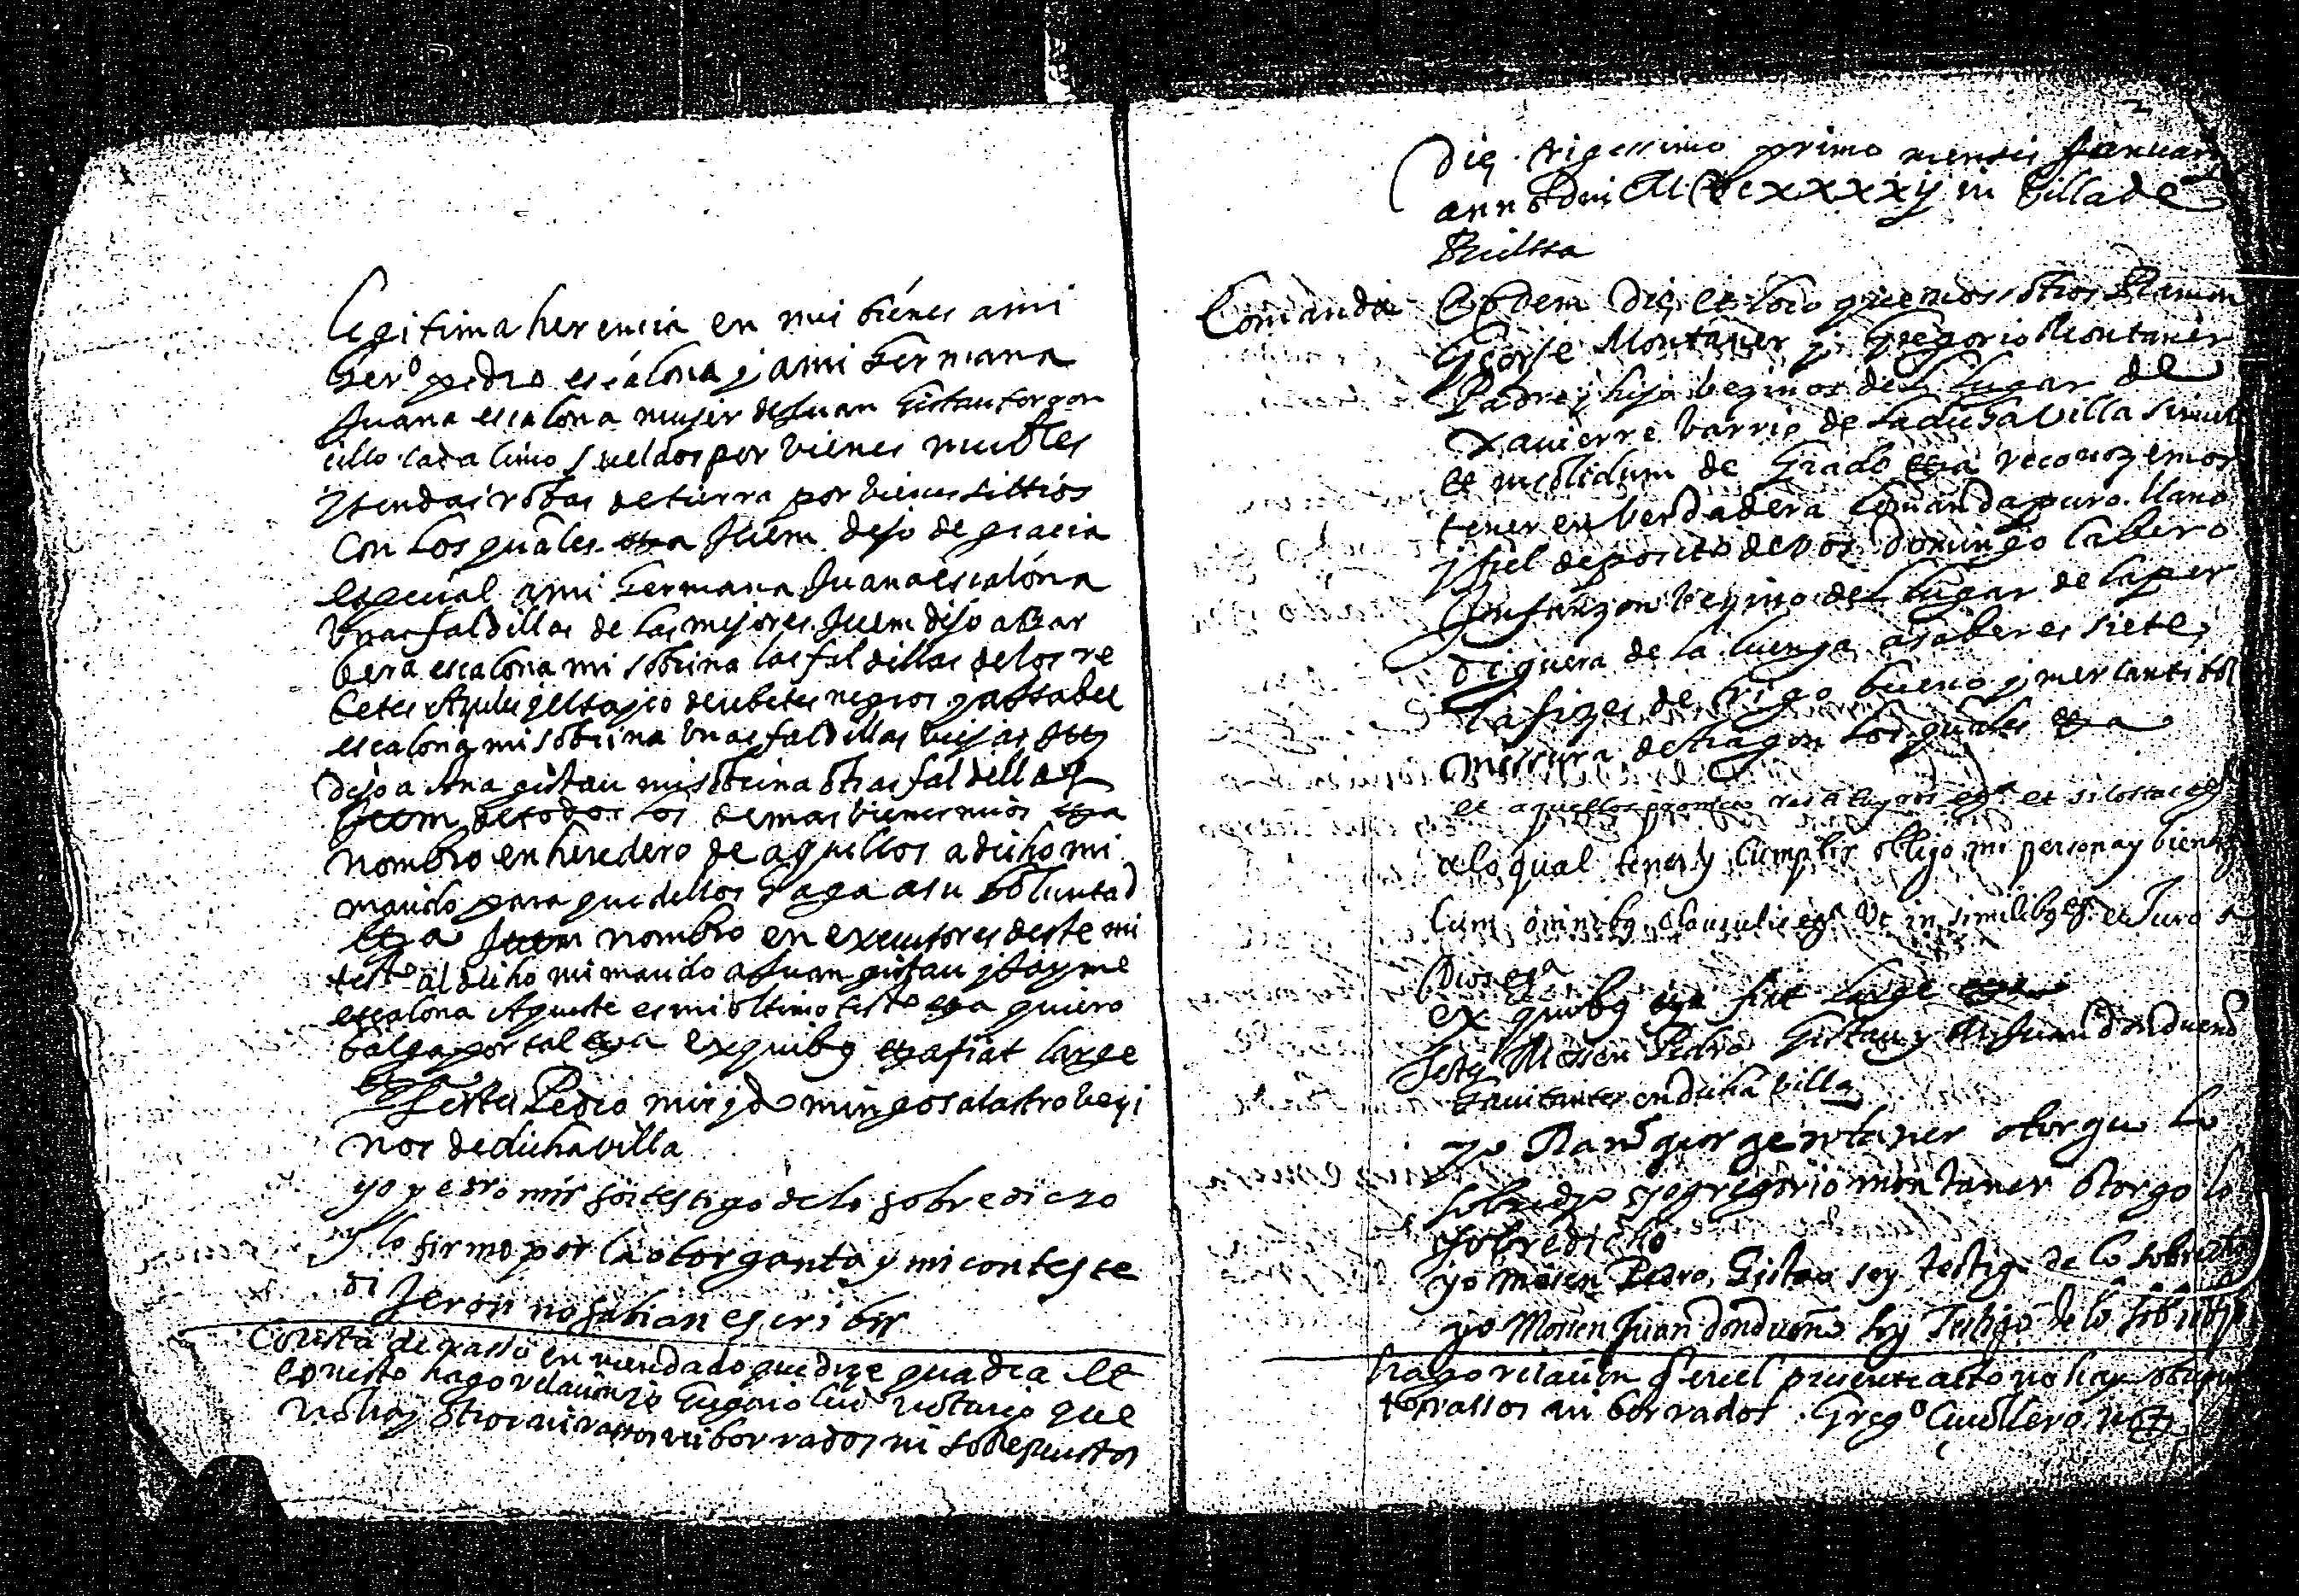 legitima herencia en mis bienes a mi
herº pedro escalona y a mi hermana
Juana escalona mujer de Juan Gistau
cada cinco sueldos por bienes muebles
y sendas robas de tierra por bienes sittios
con los quales etca Item dejo de gracia
especial a mi hermana Juana escalona
unas faldillas de las mejores Item dejo a Bar
bera escalona mi sobrina las faldillas de los re
betes Azules y el sayo de rebetes negros y a Issabel
escalona mi sobrina unas faldillas viejas
Dejo a Ana gistau mi sobrina otras faldillas
Item de todos los demas bienes mios etca
nombro en heredero de aquellos a dicho mi
marido para que dellos haga a su boluntad
etca Item nombro en executores deste mi
testº al dicho mi marido a Juan gistau y Jayme
escalona Aqueste es mi ultimo testº etca quiero
balga por tal etca ex quibq etca fiat large
Testes Pedro mir y domingo salastro vezi
nos de dicha villa
yo pedro mir soi testigo de lo sobredicho
y lo firmo por la otorganta y mi conteste
di Jeron no sabian escribir
Consta de rasso enmendado que dize
hago relacion yo notario que
no hay otros rassos ni borrados ni sobrepuestos
Die trigessimo primo mensis Januarii
anno Dni M Dc xxxxij in Villa de
Bielssa
Comanda Eodem Die et loco que nosotros Ramon
George Montaner y Gregorio Montaner
Padre y hijo vezinos del lugar de
Xavierre barrio de la dicha villa simul
et insolidum de Grado etca reconozemos
tener en berdadera Comanda puro llano
y fiel deposito de vos domingo Cabero
Infanzon vezino del lugar de la per
diguera de la luenga a saber es siete
cafizes de trigo bueno y mercantibol
messura de Aragon los quales etca
et aquellos prometo restituyros etca et si
a lo qual tener y cumplir obligo mi persona y bienes
Cum omnibq clausulis etca ut in similibq etca et Juro a
Dios etca
ex quibq etca fiat large
Testes Mossen Pedro Gistau y Mn Juan donduenº
havitantes en dicha villa
yo Ramō gorge mōtaner otorgo lo
sobredºº yo gregorio montaner otorgo lo
sobredicho
yo mosen Pedro Gistau soy testigo de lo sobredicho
yo Mossen Juan donduenº soy Testigo de lo sobredicho
hago relacion q en el presente acto no hay
rassos ni borrados Gregº Cavallero notº